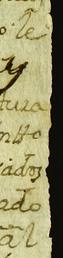 le
y
tura
nto
iados
ado
al